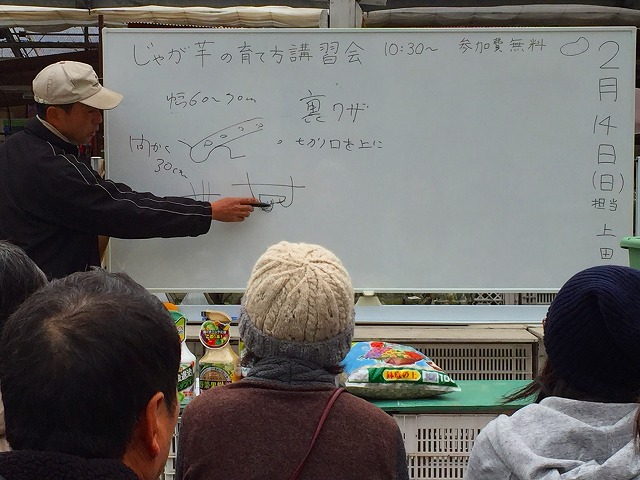 じゃが芋の育て方講習会 10:30~ 参加費無料
幅60~70cm 裏ワザ
間から
30cm
。切り口を上に
2月14日(日)担当上田